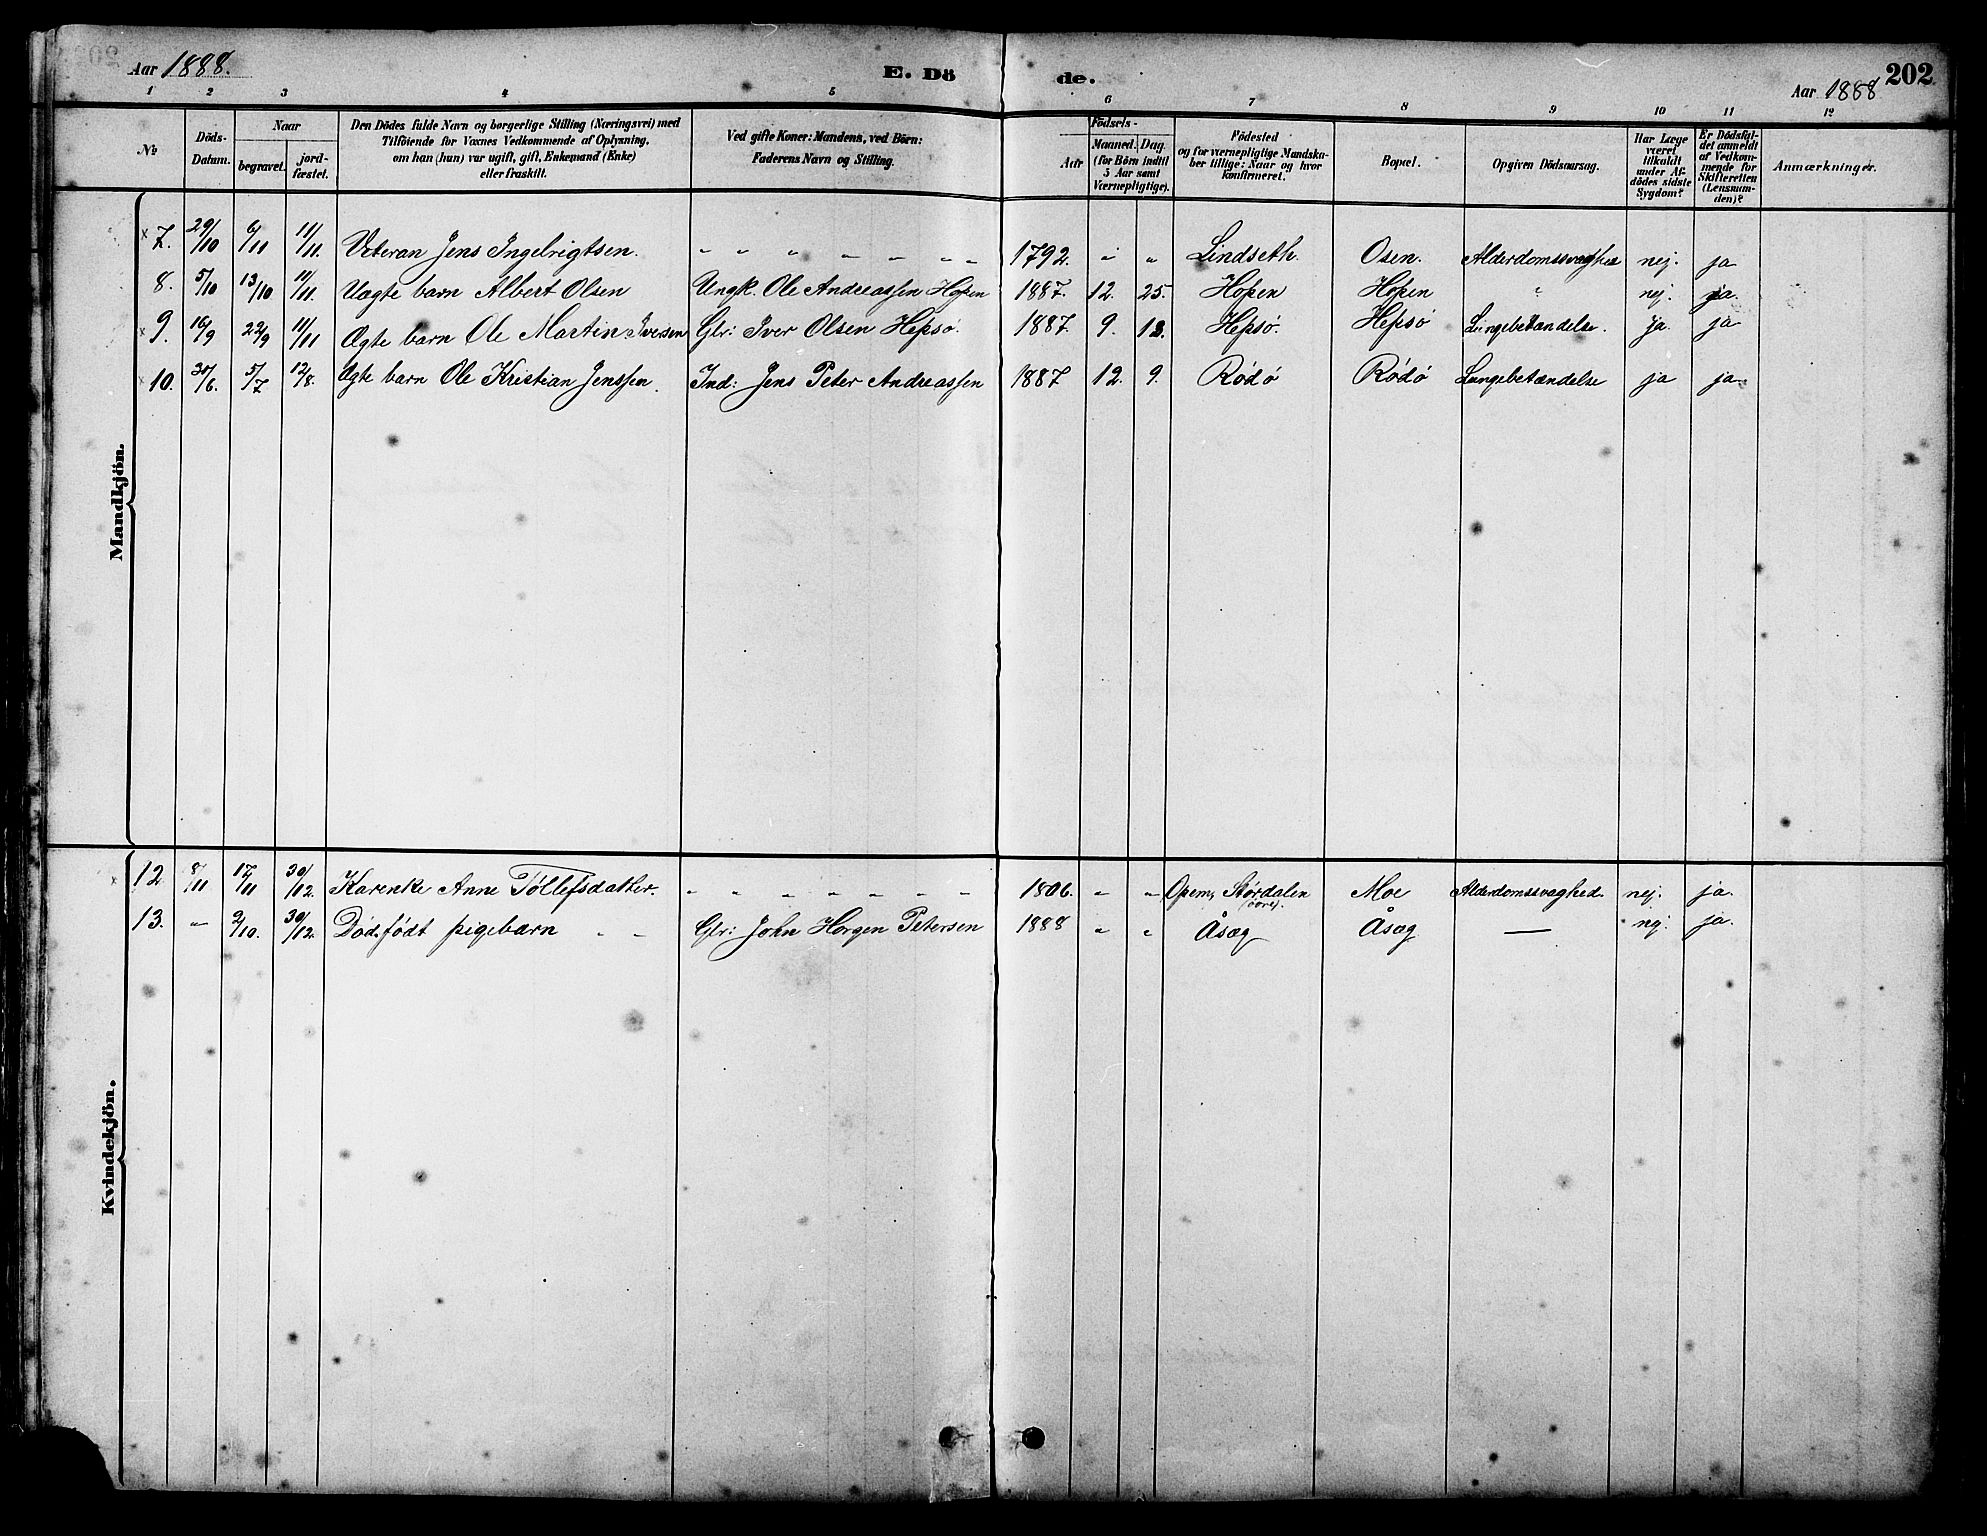 Aar 1888.
E. Dö de.
Aar 1888
202
1 2 3 4 5 6 7 8 9 10 11 12
No
Döds-Datum.
Naar
begravet.
jordfæstet.
Den Dödes fulde Navn og borgerlige Stilling (Næringsvei) med
Tilföiende for Voxnes Vedkommende af Oplysning,
om han (hun) var ugift, gift, Enkemand (Enke)
eller fraskilt.
Ved gifte Koner: Mandens, ved Börn:
Faderens Navn og Stilling.
Födsels-
Aar
Maaned. Dag.
(for Börn indtil
5 Aar samt
Værnepligtige).
Födested
og for værnepligtige Mandskaber tillige: Naar og hvor
konfirmeret.
Bopæl.
Opgiven Dödsaarsag.
Har Læge
været
tilkaldt
under Afdödes sidste
Sygdom?
Er Dödsfaldet anmeldt
af Vedkommende for
Skifteretten
(Lensmanden)?
Anmærkninger.
Mandkjön.
× 7. 29/10 6/11 11/11. Veteran Jens Ingelrigtsen. " " " " " " " 1792. " " Lindseth. Osen. Alderdomssvaghed nej. ja
8. 5/10 13/10 11/11. Uægte barn Albert Olsen Ungk. Ole Andreassen Hopen 1887. 12. 25. Hopen Hopen " nej. ja.
× 9. 16/9 22/9 11/11 Ægte barn Ole Martin Iversen Gbr: Iver Olsen Hepsö. 1887. 9. 12. Hepsö. Hepsö Lungebetændelse. ja. ja
× 10. 30/6. 5/7 12/8. Ægte barn Ole Kristian Jenssen. Ind: Jens Peter Andreassen 1887 12. 9. Rödö Rödö Lungebetændelse ja ja.
Kvindekjön.
× 12 8/11 17/11 30/12. Karenke Anne Tøllefsdatter. " " " " " " " 1806. " " Opem, Størdalen Moe Alderdomssvaghed nej. ja.
13. " 2/10. 30/12. Dødsfødt pigebarn " " Gbr: John Horgen Petersen 1888 " " Åsæg Åsæg — nej. ja.